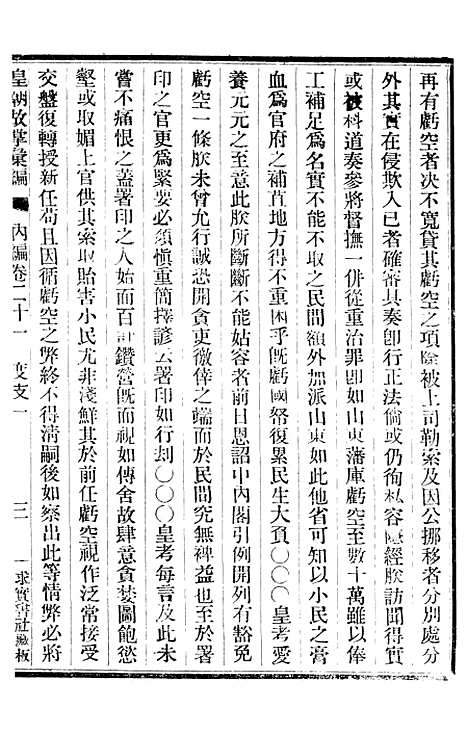 再有虧空者決不寬貸其虧空之項除被上司勒索及因公挪移者分別處分
外其實在侵欺入己者確審具奏卽行正法倘或仍徇私容隱經朕訪聞得實
或被科道奏參將督撫一併從重治罪卽如山東藩庫虧空至數十萬雖以俸
工補足爲名實不能不取之民間額外加派山東如此他省可知以小民之膏
血爲官府之補苴地方得不重困乎旣虧國帑復累民生大負○○○皇考愛
養元元之至意此朕所斷斷不能姑容者前日恩詔中內閣引例開列有豁免
虧空一條朕未曾允行誠恐開貪吏徼倖之端而於民間究無裨益也至於署
印之官更爲緊要必須愼重簡擇諺云署印如行刦○○○皇考每言及此未
嘗不痛恨之蓋署印之人始而百計鑽營旣而視如傳舍故肆意貪婪圖飽慾
壑或取媚上官供其索取貽害小民尤非淺鮮其於前任虧空視作泛常接受
交盤復轉授新任苟且因循虧空之弊終不得淸嗣後如察出此等情弊必將
皇朝故掌彙編 內編卷二十一 度支一 三 求實書社藏板